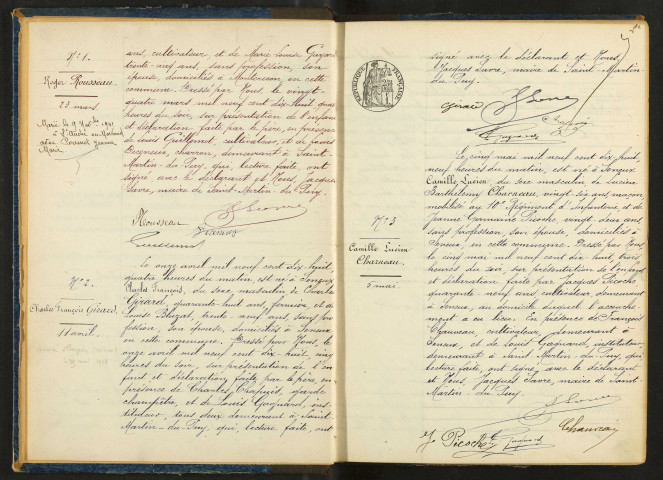 N° 1.
Roger Rousseau
23 mars
Marié le 9 Nov. 1941
à St André en Morvand
avec
Marie
ans, cultivateur et de Marie Louise Girard
trente-neuf ans, sans profession, son
épouse, domiciliés à en cette
commune. Dressé par Nous, le vingt-
quatre mars mil neuf cent dix huit,
heures du soir, sur présentation de l'enfant
et déclaration faite par le père, en présence
de Louis Guillemot, cultivateur, et de James
charron, demeurant à Saint-
Martin-du-Puy, qui, lecture faite, ont
signé avec le déclarant et Nous Jacques
maire de Saint-Martin-du-Puy
Rousseau
N° 2.
Charles François Girard,
11 avril.
Le onze avril mil neuf cent dix huit,
quatre heures du matin, est né à
Charles François, du sexe masculin de Charles
Girard, quarante-huit ans, et de
Louise trente-neuf ans, sans pro-
fession, son épouse, domiciliés à
en cette commune. Dressé par Nous, le
onze avril mil neuf cent dix huit, cinq
heures du soir, sur présentation de l'en-
fant et déclaration faite par le père, en
présence de Charles garde
champêtre, et de Louis Gagnard, ins-
tituteur, tous deux demeurant à Saint-
Martin-du-Puy, qui, lecture faite, ont
RÉPUBLIQUE FRANÇAISE
signé avec le déclarant et Nous
Jacques maire de Saint-Martin
du Puy.
Girard
N° 3
Camille Lucien
Charneau,
5 mai.
Le cinq mai mil neuf cent dix huit,
neuf heures du matin, est né à
Camille Lucien, du sexe masculin de Lucien
Barthélemy Charneau, vingt-six ans, maçon
mobilisé au 10e Régiment d'Infanterie et de
Jeanne Germaine Picoche, vingt-deux ans
sans profession, son épouse, domiciliés à
en cette commune. Dressé par Nous
le cinq mai mil neuf cent dix huit, trois
heures du soir, sur présentation de l'enfant
et déclaration faite par Jacques Picoche
quarante-neuf ans, cultivateur, demeurant
à au domicile duquel l'accouche-
ment a eu lieu. En présence de François
Chauveau, cultivateur, demeurant à
et de Louis Gagnard, instituteur
demeurant à Saint-Martin-du-Puy, qui
lecture faite, ont signé avec le déclarant
et Nous, Jacques maire de Saint-
Martin-du-Puy.
J Picoche
Gagnard
Chauveau